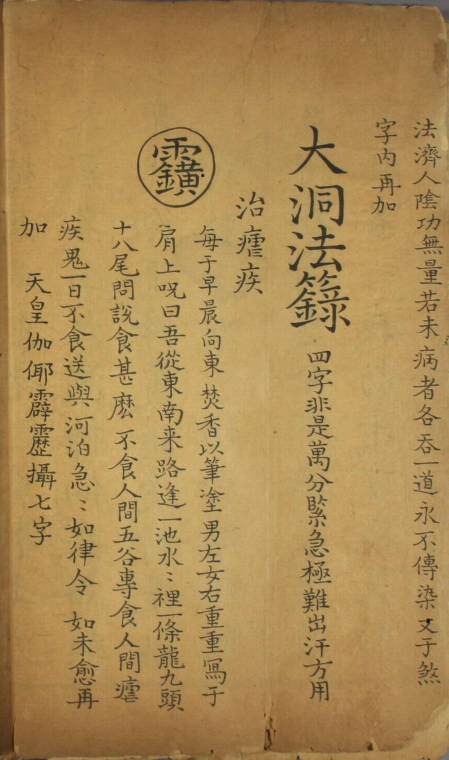 法濟人陰功無量若未病者各吞一道永不傳染又于煞
字內再加
大洞法籙 四字非是萬分緊急極難出汗方用
治瘧疾
每于早晨向東焚香以筆塗男左女右重重寫于
肩上呪曰吾從東南来路逢一池水〻裡一條龍九頭
十八尾問說食甚麽不食人間五谷專食人間瘧
疾鬼一日不食送與河泊急〻如律令 如未愈再
加 天皇伽倻霹靂攝七字